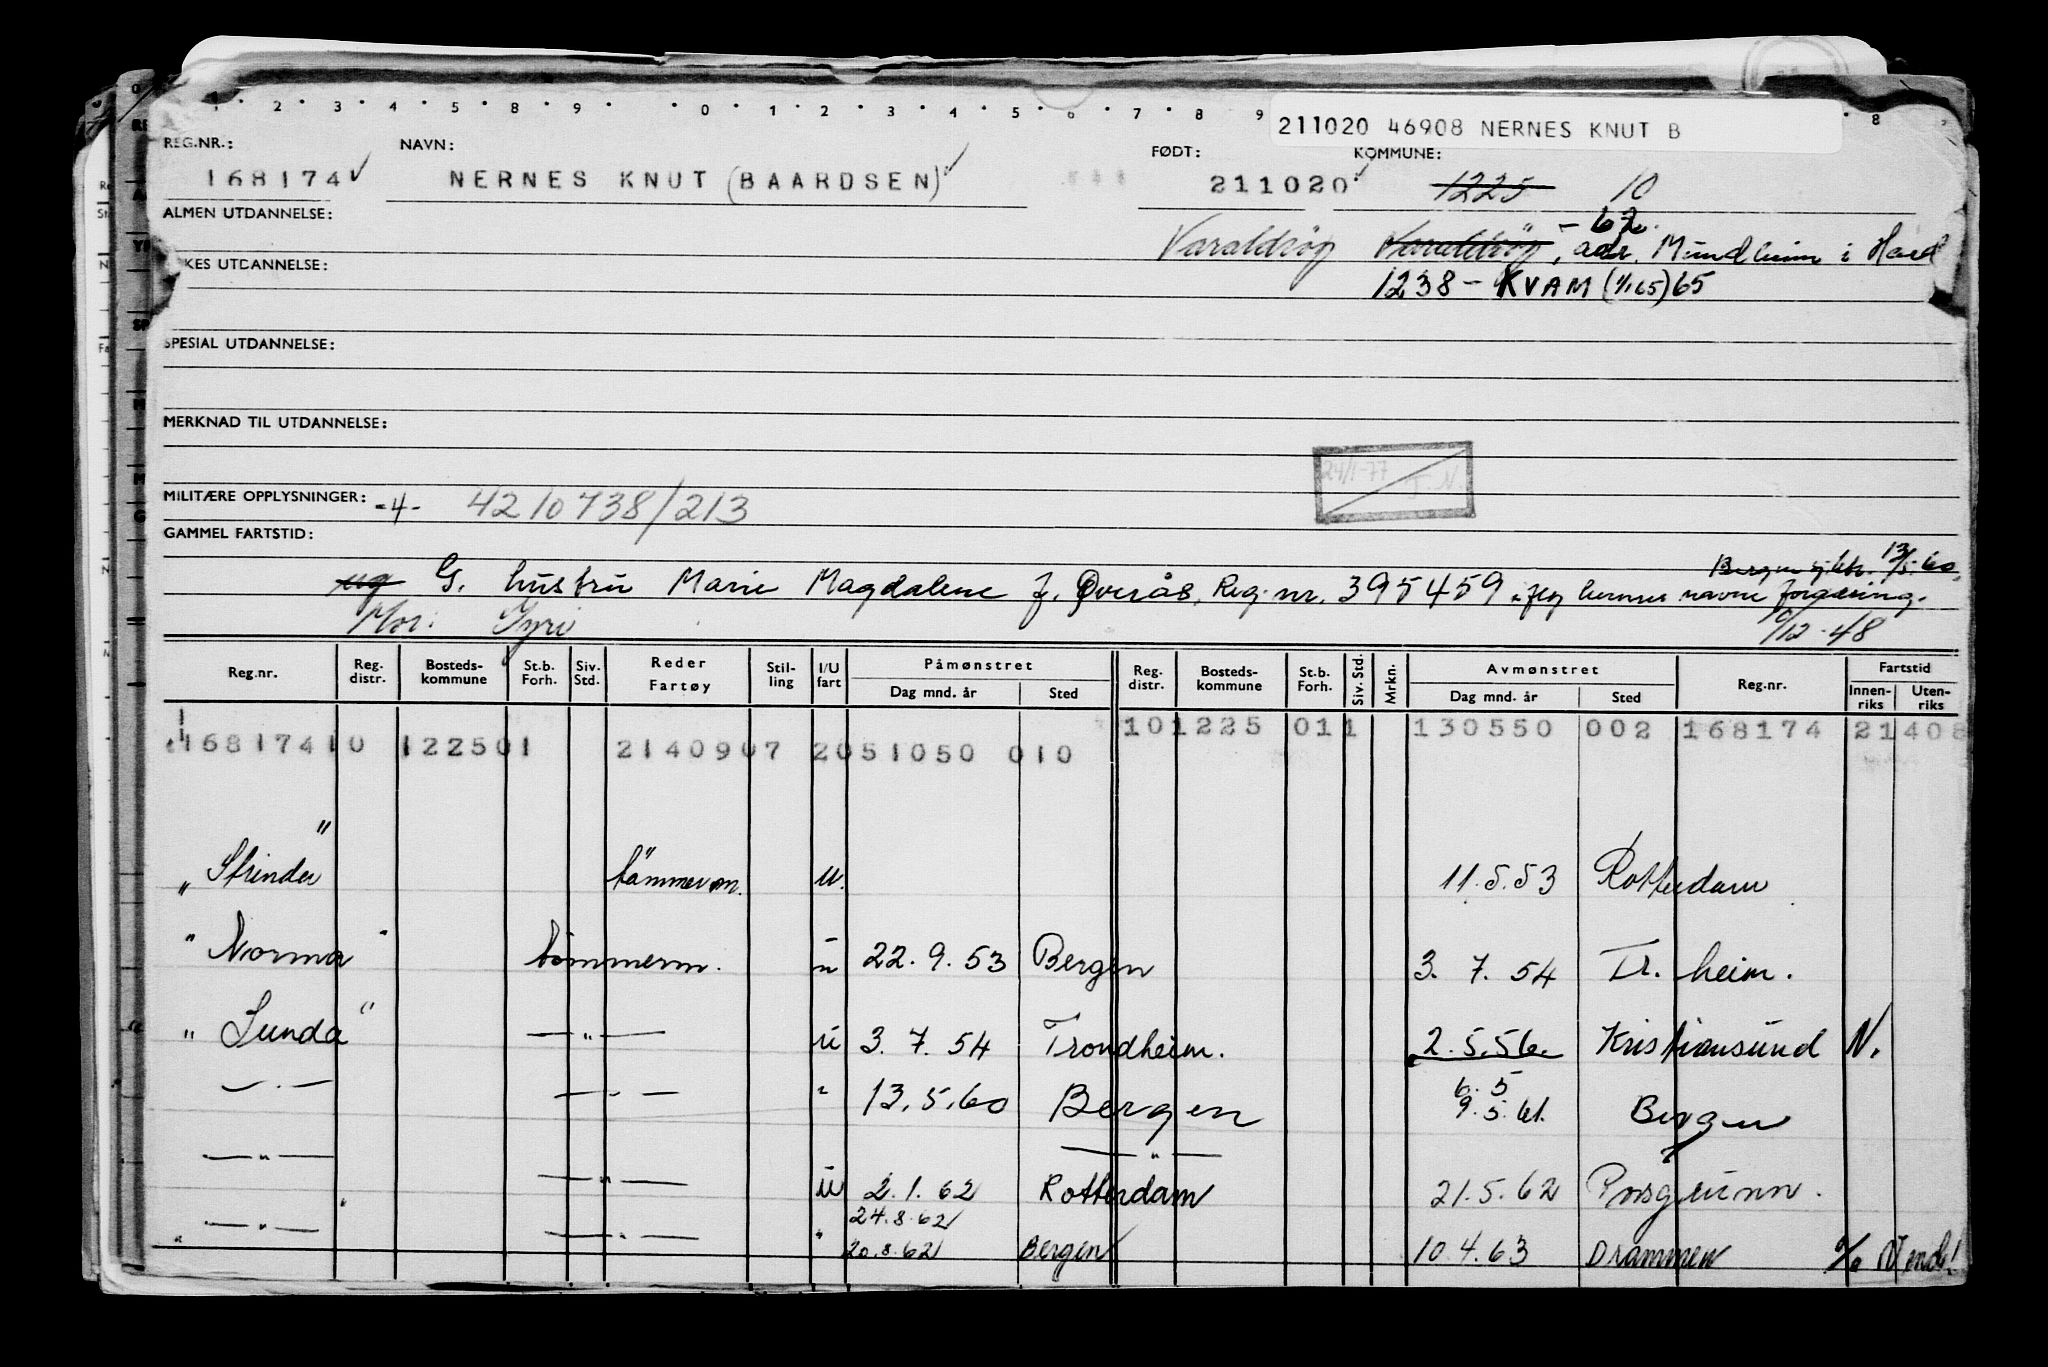 1 · 2 · 3 · 4 · 5 · 8 · 9 · · 0 · 1 · 2 · 3 · 4 · 5 · 6 · 7 · 8 · 9 8
211020 46908 NERNES KNUT B
REG.NR.: NAVN: FØDT: KOMMUNE:
168174 ✓ NERNES KNUT (BAARDSEN) ✓ 211020 ✓ 1225 10
ALMEN UTDANNELSE: - 62.
Varaldsøy Varaldsøy, adr. Mundheim i Hard
KES UTDANNELSE:
1238 - KVAM (1/1.65) 65
SPESIAL UTDANNELSE:
MERKNAD TIL UTDANNELSE:
24/1-77 J.N.
MILITÆRE OPPLYSNINGER: -4- 4210738/213
GAMMEL FARTSTID:
Bergen 13/5.60.
ug G. hustru Marie Magdalene f. Øverås, Reg. nr. 395459. hennes navne
Mor: Gyri /12-48
Reg.nr. Reg. distr. Bosteds- kommune St.b. Forh. Siv. Std. Reder Fartøy Stil- ling I/U fart Påmønstret Dag mnd. år Sted Reg. distr. Bosteds- kommune St.b. Forh. Siv. Std. Mrkn. Avmønstret Dag mnd. år Sted Reg.nr. Fartstid Innen- riks Uten- riks
101225 011 130550 002 168174 21408
16817410 122501 2140907 2051050 010
"Strinda" tömmerm. u. 11.5.53 Rotterdam
"Norma" tömmerm. u 22.9.53 Bergen 3.7.54 Tr.heim.
"Sunda" — " — u 3.7.54 Trondheim. 2.5.56. Kristiansund N.
— " — — " — " 13.5.60 Bergen 6.5 9.5.61. Bergen
— " —
— " — — " — u 2.1.62 Rotterdam 21.5.62 Porsgrunn.
24.8.62
— " — — " — " 20.8.62 Bergen 10.4.63 Drammen % Vend!